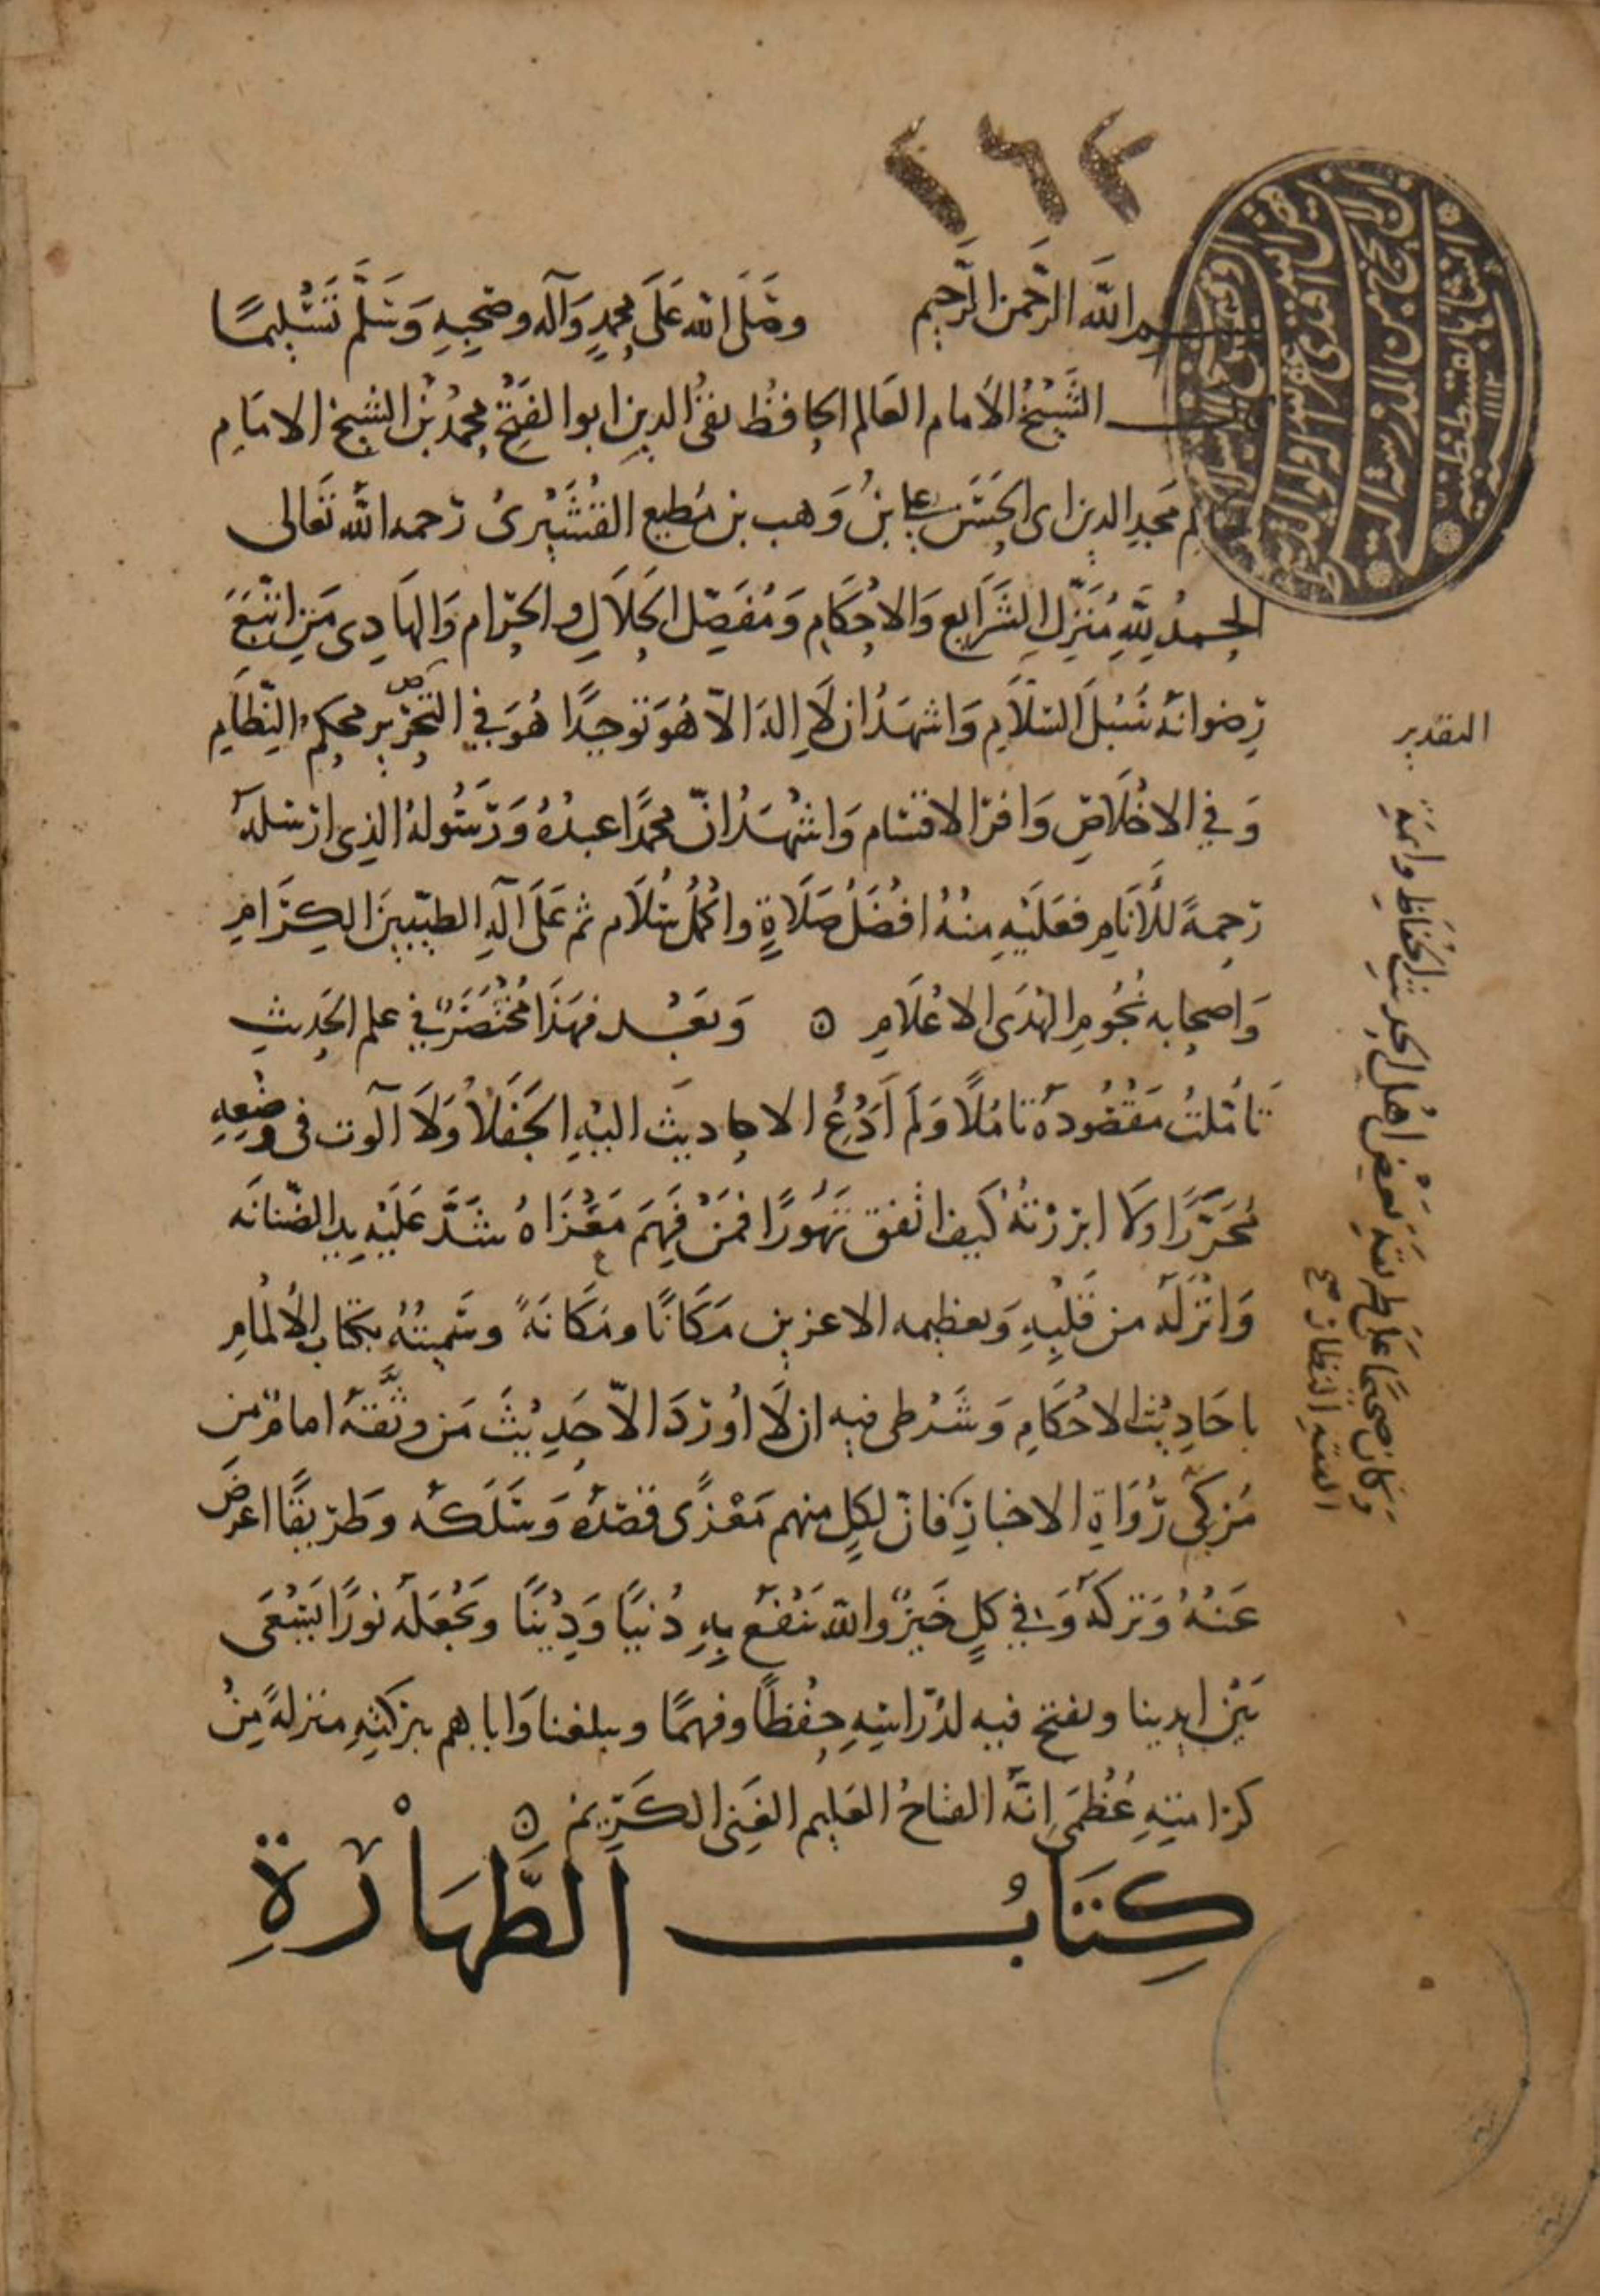 ٢٦٢
بسم الله الرحمن الرحيم وصلى الله على محمد وآله وصحبه وسلم تسليما
قال الشيخ الامام العالم الحافظ تقى الدين ابو الفتح محمد بن الشيخ الامام
مجد الدين ابى الحسن على بن وهب بن مطيع القشيرى رحمه الله تعالى
الحمد لله منزل الشرايع والاحكام ومفصل الحلال والحرام والهادى من اتبع
رضوانه سبل السلام واشهد ان لا اله الا هو توحيدا هو في التحرير محكم النظام
وفي الاخلاص وافر الاقسام واشهد ان محمدا عبده ورسوله الذى ارسله
رحمة للأنام فعليه منه افضل صلاة واكمل سلام ثم على آله الطيبين الكرام
واصحابه نجوم الهدى الاعلام ه وبعد فهذا مختصر في علم الحديث
تأملت مقصوده تاملا ولم أدع الاحاديث اليه الجفلا ولا آلوت فى وضعه
محررا ولا ابرزته كيف اتفق تهورا فمن فهم مغزاه شد عليه يد الضنانه
وانزله من قلبه وتعظيمه الاعزين مكانا ومكانة وسميته بكتاب الالمام
باحاديث الاحكام وشرطى فيه ان لا اورد الا حديث من وثقه امام من
مزكى رواة الاخبار فان لكل منهم مغزى قصده وسلكه وطريقا اعرض
عنه وتركه وفي كل خير والله ينفع به دنيا ودينا ويجعله نورا يسعى
بين ايدينا ويفتح فيه لدراسته حفظا وفهما ويبلغنا واياهم ببركته منزلة من
كرامته عظمى إنه الفتاح العليم الغنى الكريم ه
كتاب الطهارة
التقدير
وكان صحيحا على طريقة بعض اهل الحديث الحفاظ وايمة
الفقه النظار صح